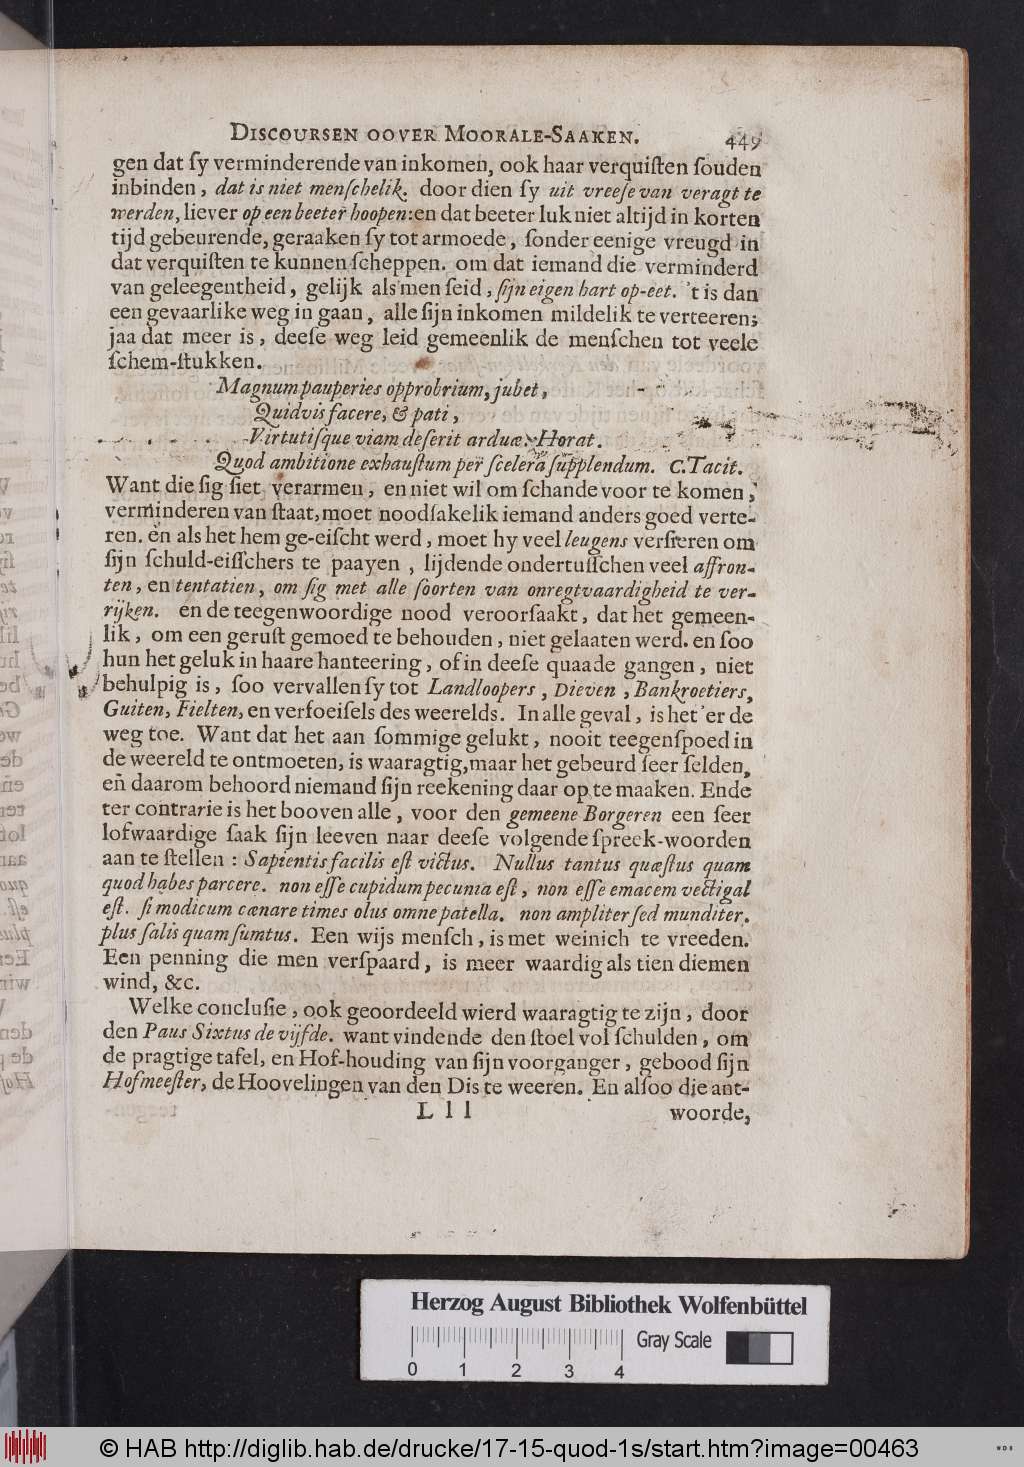 DISCOURSEN OOVER MOORALE-SAAKEN. 449
gen dat ſy verminderende van inkomen, ook haar verquiſten ſouden
inbinden, dat is niet menſchelik. door dien ſy uit vreeſe van veragt te
werden, liever op een beeter hoopen: en dat beeter luk niet altijd in korten
tijd gebeurende, geraaken ſy tot armoede, ſonder eenige vreugd in
dat verquiſten te kunnen ſcheppen. om dat iemand die verminderd
van geleegentheid, gelijk als men ſeid, ſijn eigen hart op-eet. 't is dan
een gevaarlike weg in gaan, alle ſijn inkomen mildelik te verteeren;
jaa dat meer is, deeſe weg leid gemeenlik de menſchen tot veele
ſchem-ſtukken.
Magnum pauperies opprobrium, jubet,
Quidvis facere, & pati,
Virtutiſque viam deſerit arduæ. Horat.
Quod ambitione exhauſtum per ſcelera ſupplendum. C. Tacit.
Want die ſig ſiet verarmen, en niet wil om ſchande voor te komen,
verminderen van ſtaat, moet noodſakelik iemand anders goed verte-
ren. en als het hem ge-eiſcht werd, moet hy veel leugens verſieren om
ſijn ſchuld-eiſſchers te paayen, lijdende ondertuſſchen veel affron-
ten, en tentatien, om ſig met alle ſoorten van onregtvaardigheid te ver-
rijken. en de teegenwoordige nood veroorſaakt, dat het gemeen-
lik, om een geruſt gemoed te behouden, niet gelaaten werd. en ſoo
hun het geluk in haare hanteering, of in deeſe quaade gangen, niet
behulpig is, ſoo vervallen ſy tot Landloopers, Dieven, Bankroetiers,
Guiten, Fielten, en verfoeiſels des weerelds. In alle geval, is het'er de
weg toe. Want dat het aan ſommige gelukt, nooit teegenſpoed in
de weereld te ontmoeten, is waaragtig, maar het gebeurd ſeer ſelden,
en̄ daarom behoord niemand ſijn reekening daar op te maaken. Ende
ter contrarie is het booven alle, voor den gemeene Borgeren een ſeer
lofwaardige ſaak ſijn leeven naar deeſe volgende ſpreek-woorden
aan te ſtellen: Sapientis facilis eſt victus. Nullus tantus quæſtus quam
quod habes parcere. non eſſe cupidum pecunia eſt, non eſſe emacem vectigal
eſt. ſi modicum cænare times olus omne patella. non ampliter ſed munditer.
plus ſalis quam ſumtus. Een wijs menſch, is met weinich te vreeden.
Een penning die men verſpaard, is meer waardig als tien diemen
wind, &c.
Welke concluſie, ook geoordeeld wierd waaragtig te zijn, door
den Paus Sixtus de vijfde. want vindende den ſtoel vol ſchulden, om
de pragtige tafel, en Hof-houding van ſijn voorganger, gebood ſijn
Hofmeeſter, de Hoovelingen van den Dis te weeren. En alſoo die ant-
L l l woorde,
Herzog August Bibliothek Wolfenbüttel
Gray Scale
0 1 2 3 4
© HAB http://diglib.hab.de/drucke/17-15-quod-1s/start.htm?image=00463